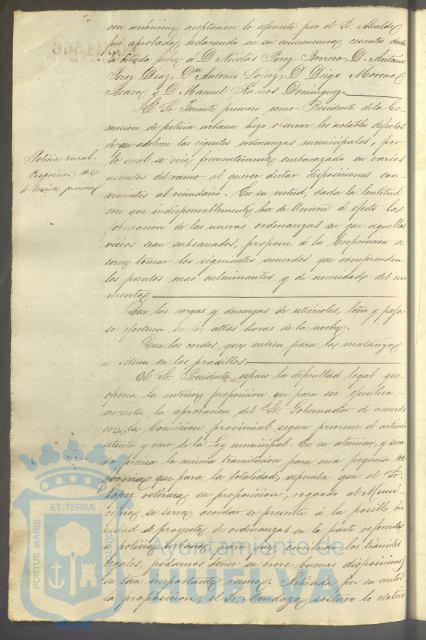 con unánime aceptación lo espuesto por el Sr. Alcalde
fué aprobado, declarando en su consecuencia cesantes desde
la citada fecha á D. Nicolás Perez Borrero, D. Antonio
Perez Diaz, Dn. Antonio Lopez, D. Diego Moreno
y D. Manuel Domínguez.
El Sr. Teniente primero, como Presidente de la Co-
misión de policía urbana hizo observar los notables defectos
de que adolecen las vigentes ordenanzas municipales, por
lo cual se veía frecuentemente embarazado en varios
asuntos del ramo al querer dictar disposiciones con-
venientes al vecindario. En su virtud, dada la lentitud
con que indispensablemente ha de llevarse á efecto la
formacion de las nuevas ordenanzas en que aquellos
vicios sean subsanados, propone á la Corporación se
sirva tomar los siguientes acuerdos que comprenden
los puntos mas culminantes y de necesidad del mo-
mento.
Policia rural.
Proposicion del
Sr. Teniente primero
Que las cargas y descargas de leña y paja
se efectuen en las altas horas de la noche.
Que los cerdos que entren para las matanzas
en los pradillos.
El Sr. Presidente espuso la dificultad legal que
ofrecia la anterior proposicion que para ser ejecutiva
necesita la aprobacion del Sr. Gobernador de acuerdo
con la Comision provincial segun previene el articulo
setenta y seis de la ley municipal. En su atencion, y
precisa la misma tramitacion para una pequeña re-
forma que para la totalidad, esperaba que el Sr.
Lopez retirara su proposicion, rogando al Muni-
cipio se sirva acordar se presente á la posible bre-
vedad el proyecto de ordenanzas en la parte referente
á policía urbana, para que los trámites
legales, podamos tener en breve buenas disposiciones
en tan importante ramo. Retirada por su autor
la proposicion, el Sr. sostuvo lo relativo
PORTUS MARIS ET TERRÆ
Ayuntamiento de
HUELVA